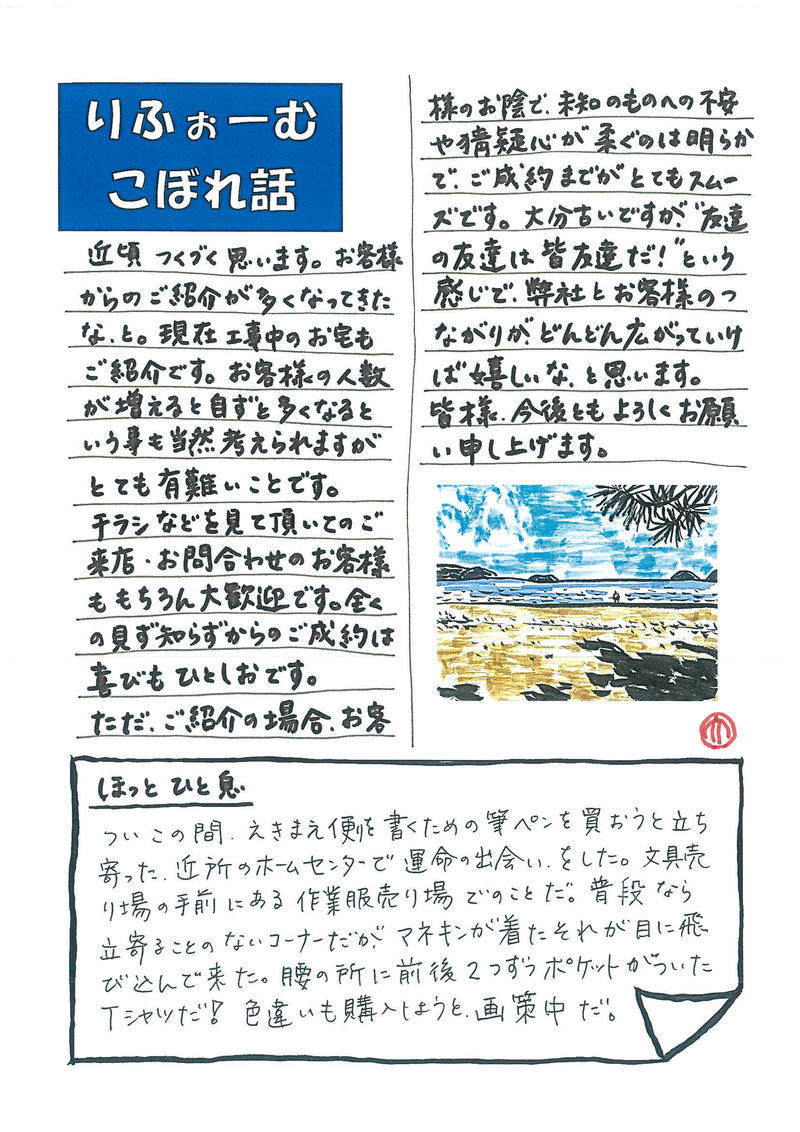 りふぉーむ
こぼれ話
近頃つくづく思います。お客様
からのご紹介が多くなってきた
な、と。現在工事中のお宅も
ご紹介です。お客様の人数
が増えると自ずと多くなると
いう事も当然考えられますが
とても有難いことです。
チラシなどを見て頂いてのご
来店・お問合わせのお客様
ももちろん大歓迎です。全く
の見ず知らずからのご成約は
喜びもひとしおです。
ただ、ご紹介の場合、お客
様のお陰で、未知のものへの不安
や猜疑心が柔ぐのは明らか
で、ご成約までがとてもスムー
ズです。大分古いですが、“友達
の友達は皆友達だ！”という
感じで、弊社とお客様のつ
ながりが、どんどん広がっていけ
ば嬉しいな、と思います。
皆様、今後ともよろしくお願
い申し上げます。
ほっとひと息
ついこの間、えきまえ便を書くための筆ペンを買おうと立ち
寄った、近所のホームセンターで運命の出会い、をした。文具売
り場の手前にある作業服売り場でのことだ。普段なら
立寄ることのないコーナーだが、マネキンが着たそれが目に飛
び込んで来た。腰の所に前後2つずつポケットがついた
Tシャツだ！色違いも購入しようと、画策中だ。